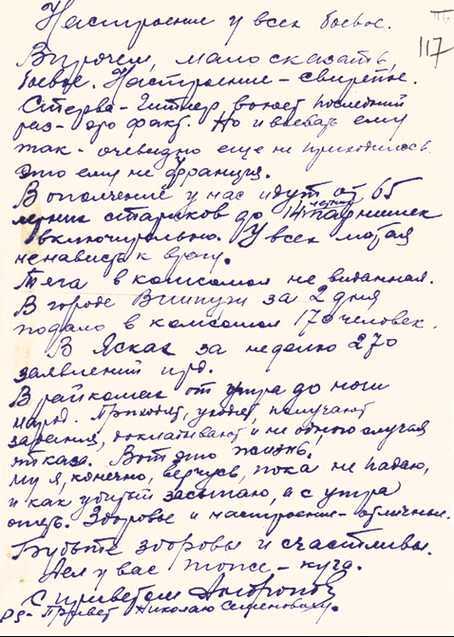 Настроение у всех боевое.
117
Впрочем, мало сказать,
боевое. Настроение – свирепое.
Стерва – Гитлер воюет последний
раз – это факт. Но и воевать ему
так – очевидно еще не приходилось.
Это ему не Франция.
В ополчение у нас идут от 65
летних стариков до 14 летних парнишек
включительно. У всех лютая
ненависть к врагу.
Тяга в комсомол не виданная.
В городе за 2 дня
подало в комсомол 170 человек.
В за неделю 270
заявлений и т.д.
В райкомах от утра до ночи
народ. Приходят, уходят, получают
задания, докладывают и не одного случая
отказа. Вот это жизнь.
Ну я, конечно, верчусь, пока не падаю,
и как убитый засыпаю, а с утра
опять. Здоровье и настроение – отличные.
Будьте здоровы и счастливы.
Дел у вас тоже – куча.
С приветом Андропов
PS – Привет Николаю